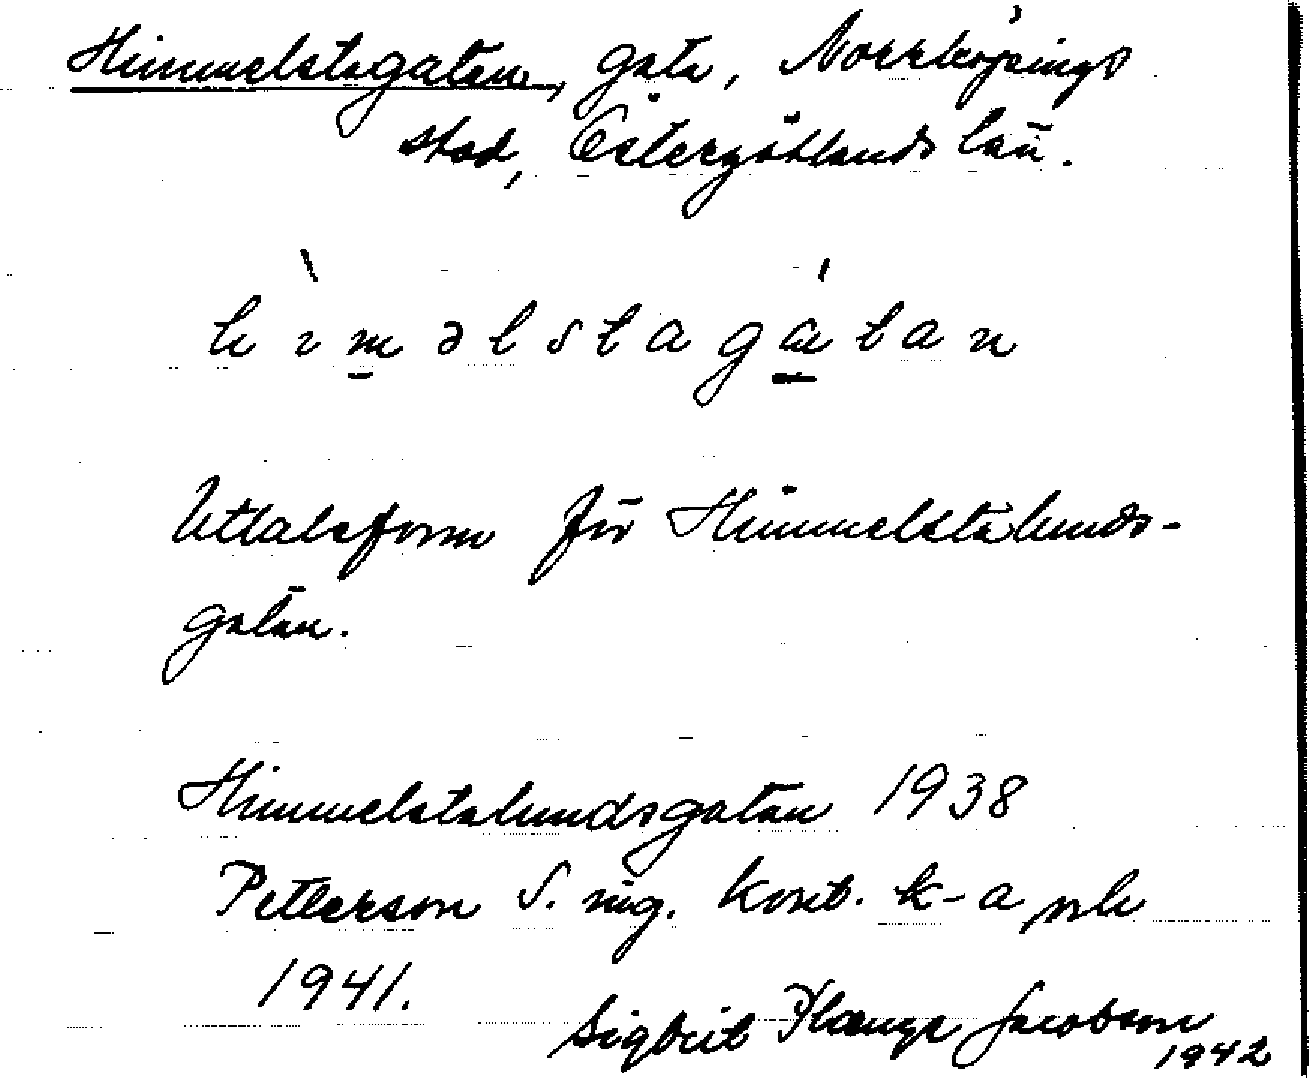 Himmelstagatan, gata, Norrköpings
stad, Östergötlands län.
h ì m ə l s t a g á t a n
Uttalsform för Himmelstalunds-
gatan.
Himmelstalundsgatan 1938
Petterson S. ing. kont. k-a
1941.
Sigbrit Plænge Jacobson
1942